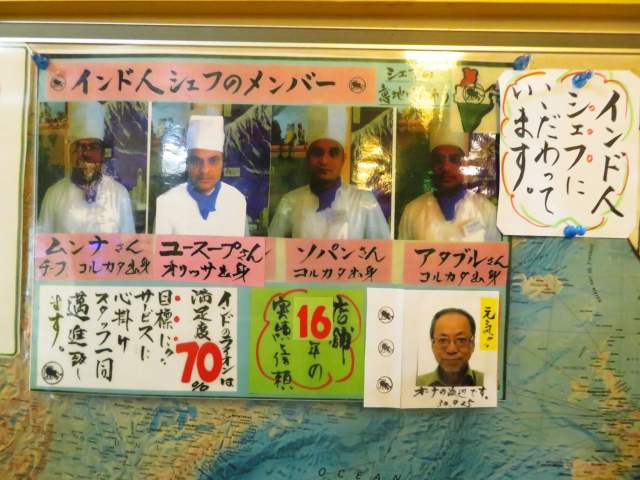 インド人シェフのメンバー
シェフの
ムンナさん
チーフ コルカタ出身
ユースープさん
オリッサ出身
ソパンさん
コルカタ出身
アタブルさん
コルカタ出身
インド人
シェフに
こだわって
います。
インドのライオンは
満足度
70%
目標にの
サービスに
心掛け
スタッフ一同
邁進致し
ます。
店舗
16年の
実績と信頼
元気!!
オーナーの渡辺です。
30.9.25
OCEAN